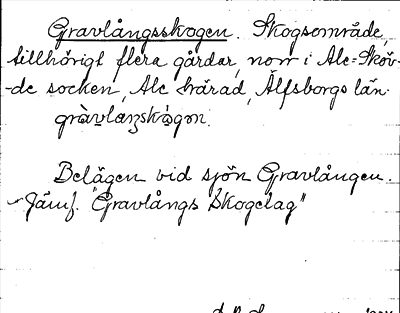 Gravlångsskogen. Skogsområde,
tillhörigt flera gårdar, norr i Ale-Sköv-
-de socken, Ale härad, Älfsborgs län.
Belägen vid sjön Gravlången.
Jämf. "Gravlångs Skogelag"